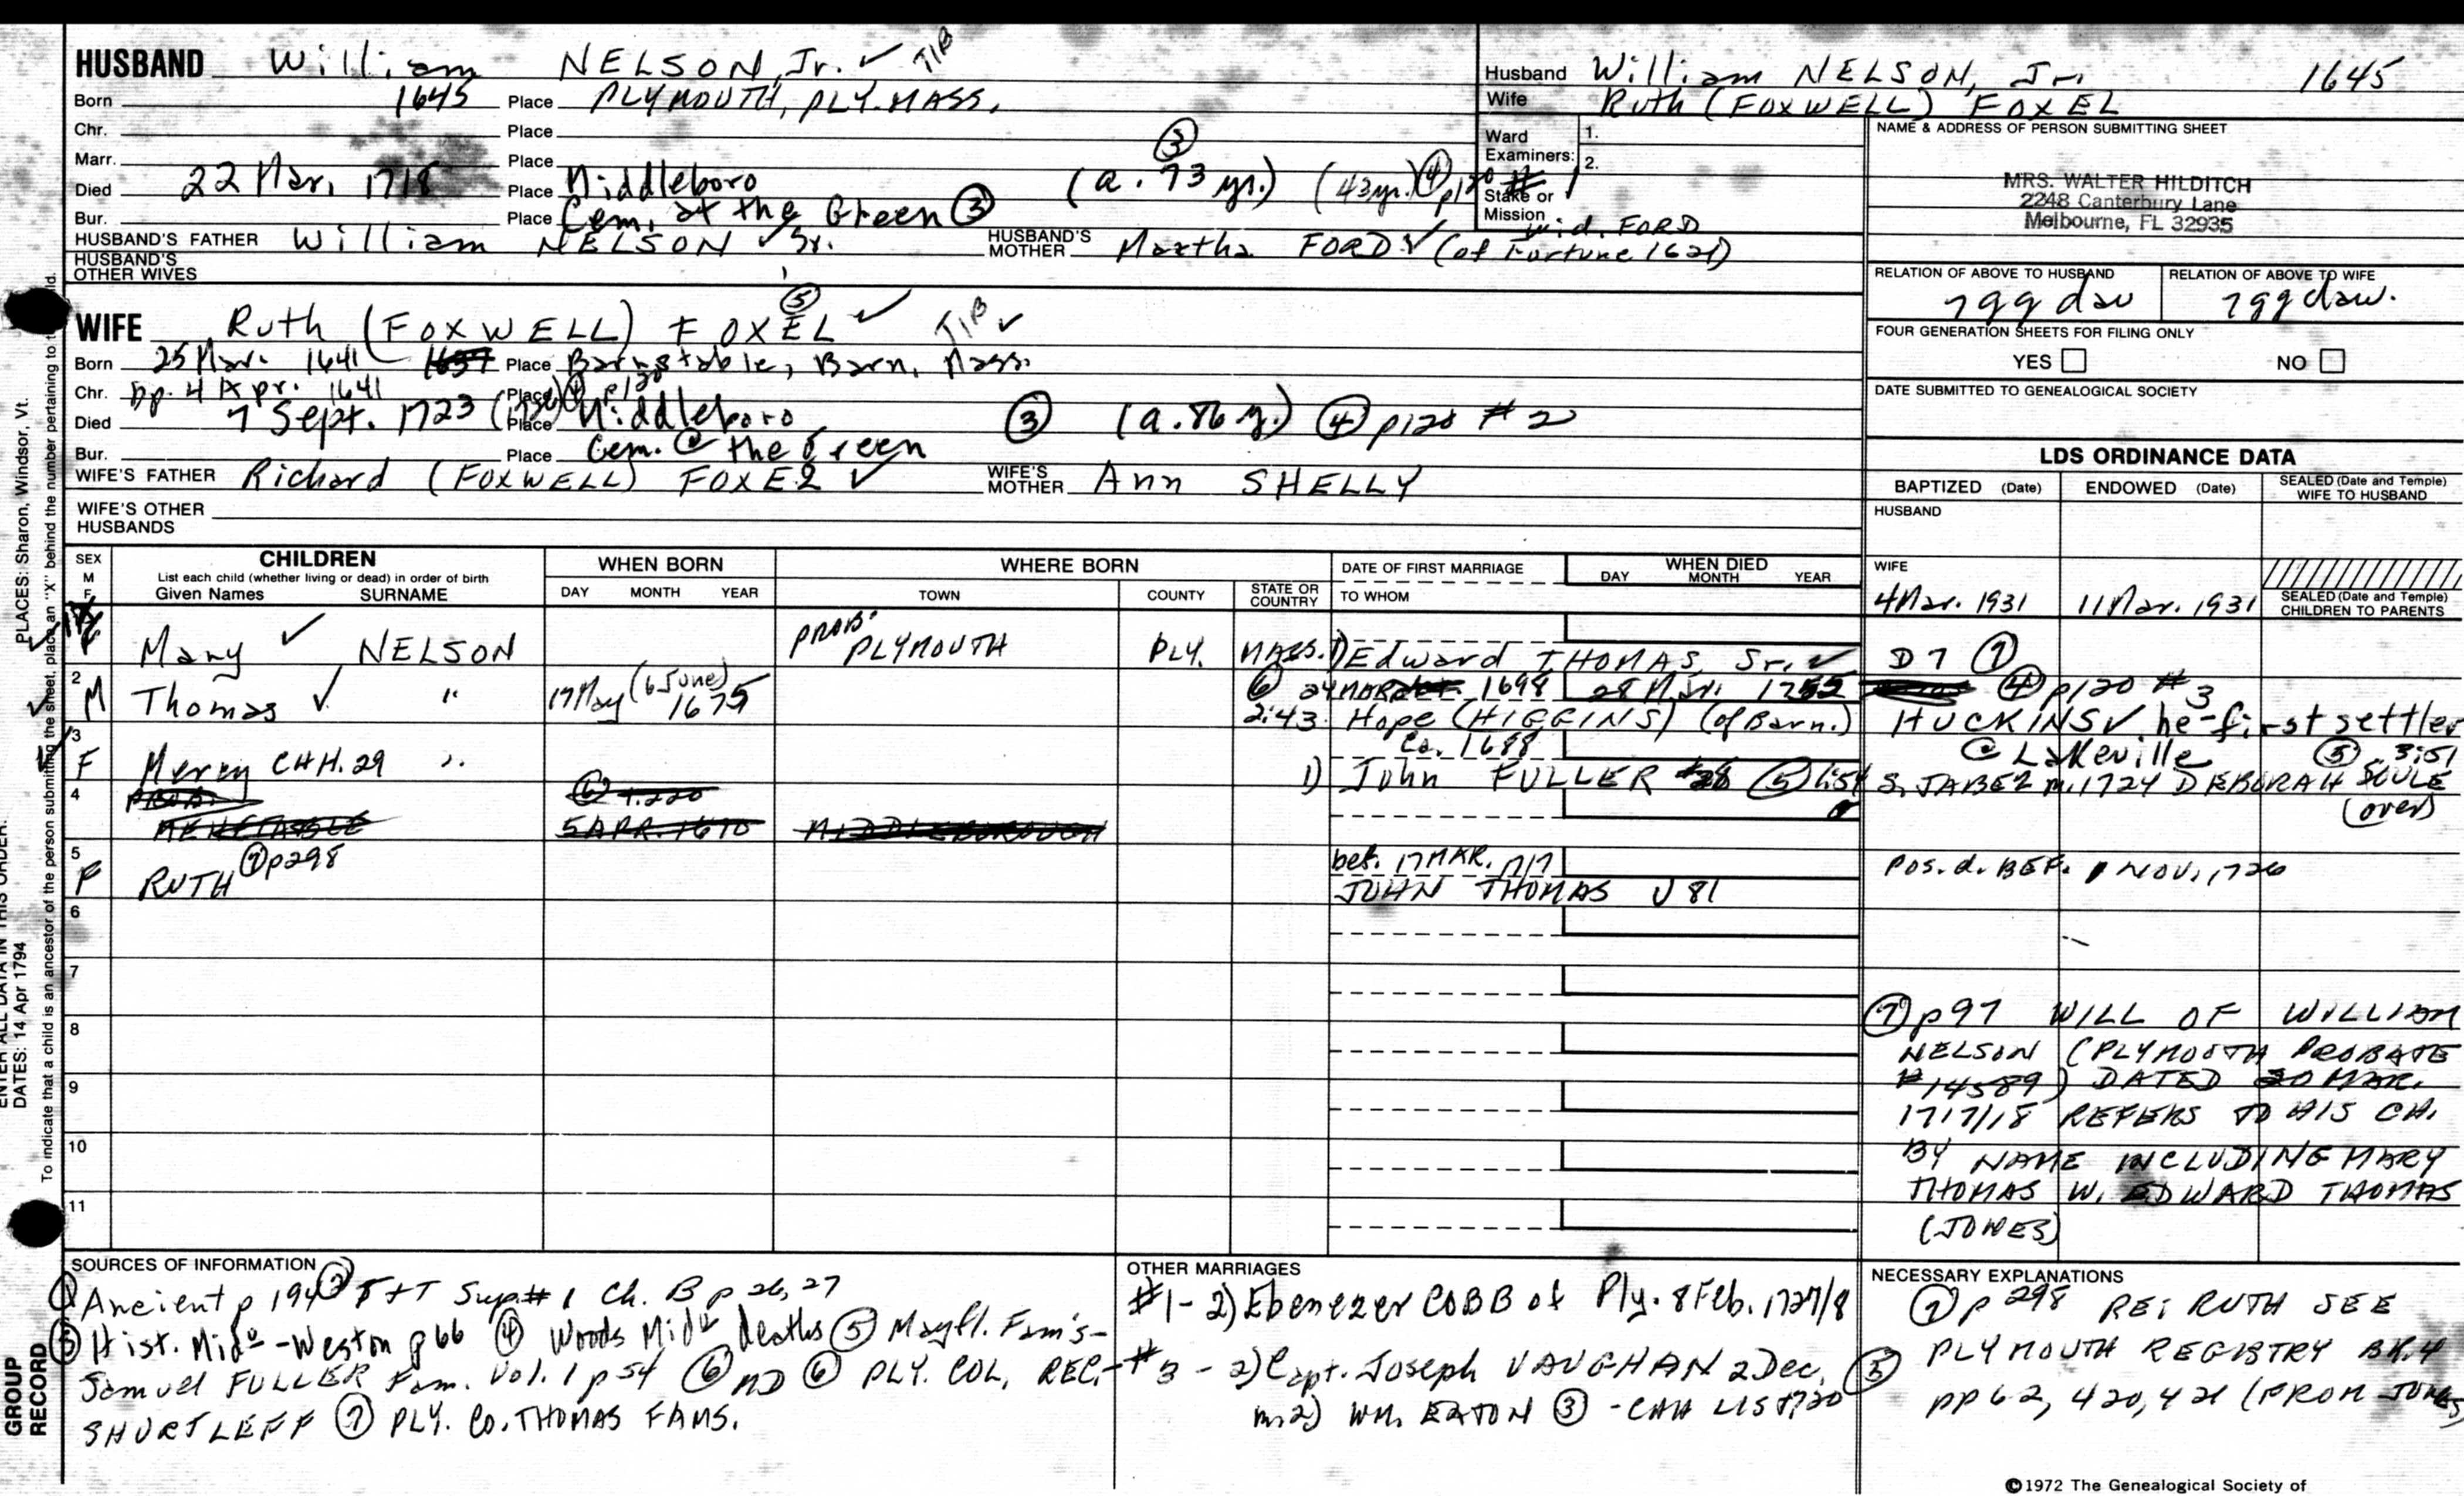 HUSBAND William NELSON, Jr. ✓ TIB
Born 1645 Place PLYMOUTH, PLY. MASS.
Chr. Place
Marr. Place
Died 22 Mar. 1718 Place Middleboro (a. 73 yr.) ③ (43 yr.) ④ p120 # 1
Bur. Place Cem. at the Green ③
HUSBAND'S FATHER William NELSON ✓ Sr. HUSBAND'S MOTHER Martha FORD ✓ (of Fortune 1621)
wid. FORD
HUSBAND'S OTHER WIVES
WIFE Ruth (FOXWELL) FOXEL ⑤ ✓ TIB ✓
Born 25 Mar. 1641 Place Barnstable, Barn. Mass.
Chr. bp. 4 Apr. 1641 Place ④ p120
Died 7 Sept. 1723 Place Middleboro ③ (a. 86 y.) ④ p120 # 2
Bur. Place Cem. @ the Green
WIFE'S FATHER Richard (FOXWELL) FOXEL ✓ WIFE'S MOTHER Ann SHELLY
WIFE'S OTHER HUSBANDS
Husband William NELSON, Jr. 1645
Wife Ruth (FOXWELL) FOXEL
Ward 1.
Examiners: 2.
Stake or Mission
NAME & ADDRESS OF PERSON SUBMITTING SHEET
MRS. WALTER HILDITCH
2248 Canterbury Lane
Melbourne, FL 32935
RELATION OF ABOVE TO HUSBAND RELATION OF ABOVE TO WIFE
7gg dau 7gg daw.
FOUR GENERATION SHEETS FOR FILING ONLY
YES NO
DATE SUBMITTED TO GENEALOGICAL SOCIETY
LDS ORDINANCE DATA
BAPTIZED (Date) ENDOWED (Date) SEALED (Date and Temple) WIFE TO HUSBAND
HUSBAND
WIFE
4 Mar. 1931 11 Mar. 1931 SEALED (Date and Temple) CHILDREN TO PARENTS
SEX M F CHILDREN WHEN BORN WHERE BORN DATE OF FIRST MARRIAGE WHEN DIED
List each child (whether living or dead) in order of birth
Given Names SURNAME DAY MONTH YEAR TOWN COUNTY STATE OR COUNTRY TO WHOM DAY MONTH YEAR
F Mary ✓ NELSON PROB. PLYMOUTH PLY. MASS. 1) Edward THOMAS, Sr. ✓ D7 ⑦
2 M Thomas ✓ " 17 May (6 June) 1675 ⑥ 24 MAR 1698 28 Mar. 1755 ④ p120 # 3
2:43 Hope (HIGGINS) (of Barn.) HUCKINS ✓ he-first settler @ Lakeville
3 F Mercy CHH. 29 ". Ca. 1688 ⑤ 3:51
1) John FULLER ⑤ list S. JABEZ m. 1724 DEBORAH SOULE
(over)
4 5 APR. 1670 MIDDLEBOROUGH
5 F RUTH ⑦ p298 bef. 17 MAR. 17/17 Pos. d. BEF. 1 NOV. 1726
JOHN THOMAS J 81
6
7
8
9
10
11
⑦ p97 WILL OF WILLIAM
NELSON (PLYMOUTH PROBATE
#14589) DATED 20 MAR.
1717/18 REFERS TO HIS CH.
BY NAME INCLUDING MARY
THOMAS W. EDWARD THOMAS
(JONES)
SOURCES OF INFORMATION
① Ancient p 194 ② F+T Sup. # 1 Ch. B p 26, 27
③ Hist. Mid° -Weston p 66 ④ Woods Mid° deaths ⑤ Mayfl. Fam's-
Samuel FULLER Fam. Vol. 1 p 54 ⑥ MD ⑥ PLY. COL. REC.-
SHURTLEFF ⑦ PLY. CO. THOMAS FAMS.
OTHER MARRIAGES
#1 - 2) Ebenezer COBB of Ply. 8 Feb. 1727/8
#3 - 2) Capt. Joseph VAUGHAN 2 Dec. ⑤ 1720
m. 2) WM. EATON ③ - CHH LIST
NECESSARY EXPLANATIONS
⑦ p 298 RE: RUTH SEE
PLYMOUTH REGISTRY BK. 4
pp 62, 420, 421 (FROM JONES)
©1972 The Genealogical Society of
PLACES: Sharon, Windsor, Vt.
ENTER ALL DATA IN THIS ORDER:
DATES: 14 Apr 1794
To indicate that a child is an ancestor of the person submitting the sheet, place an "X" behind the number pertaining to
GROUP RECORD